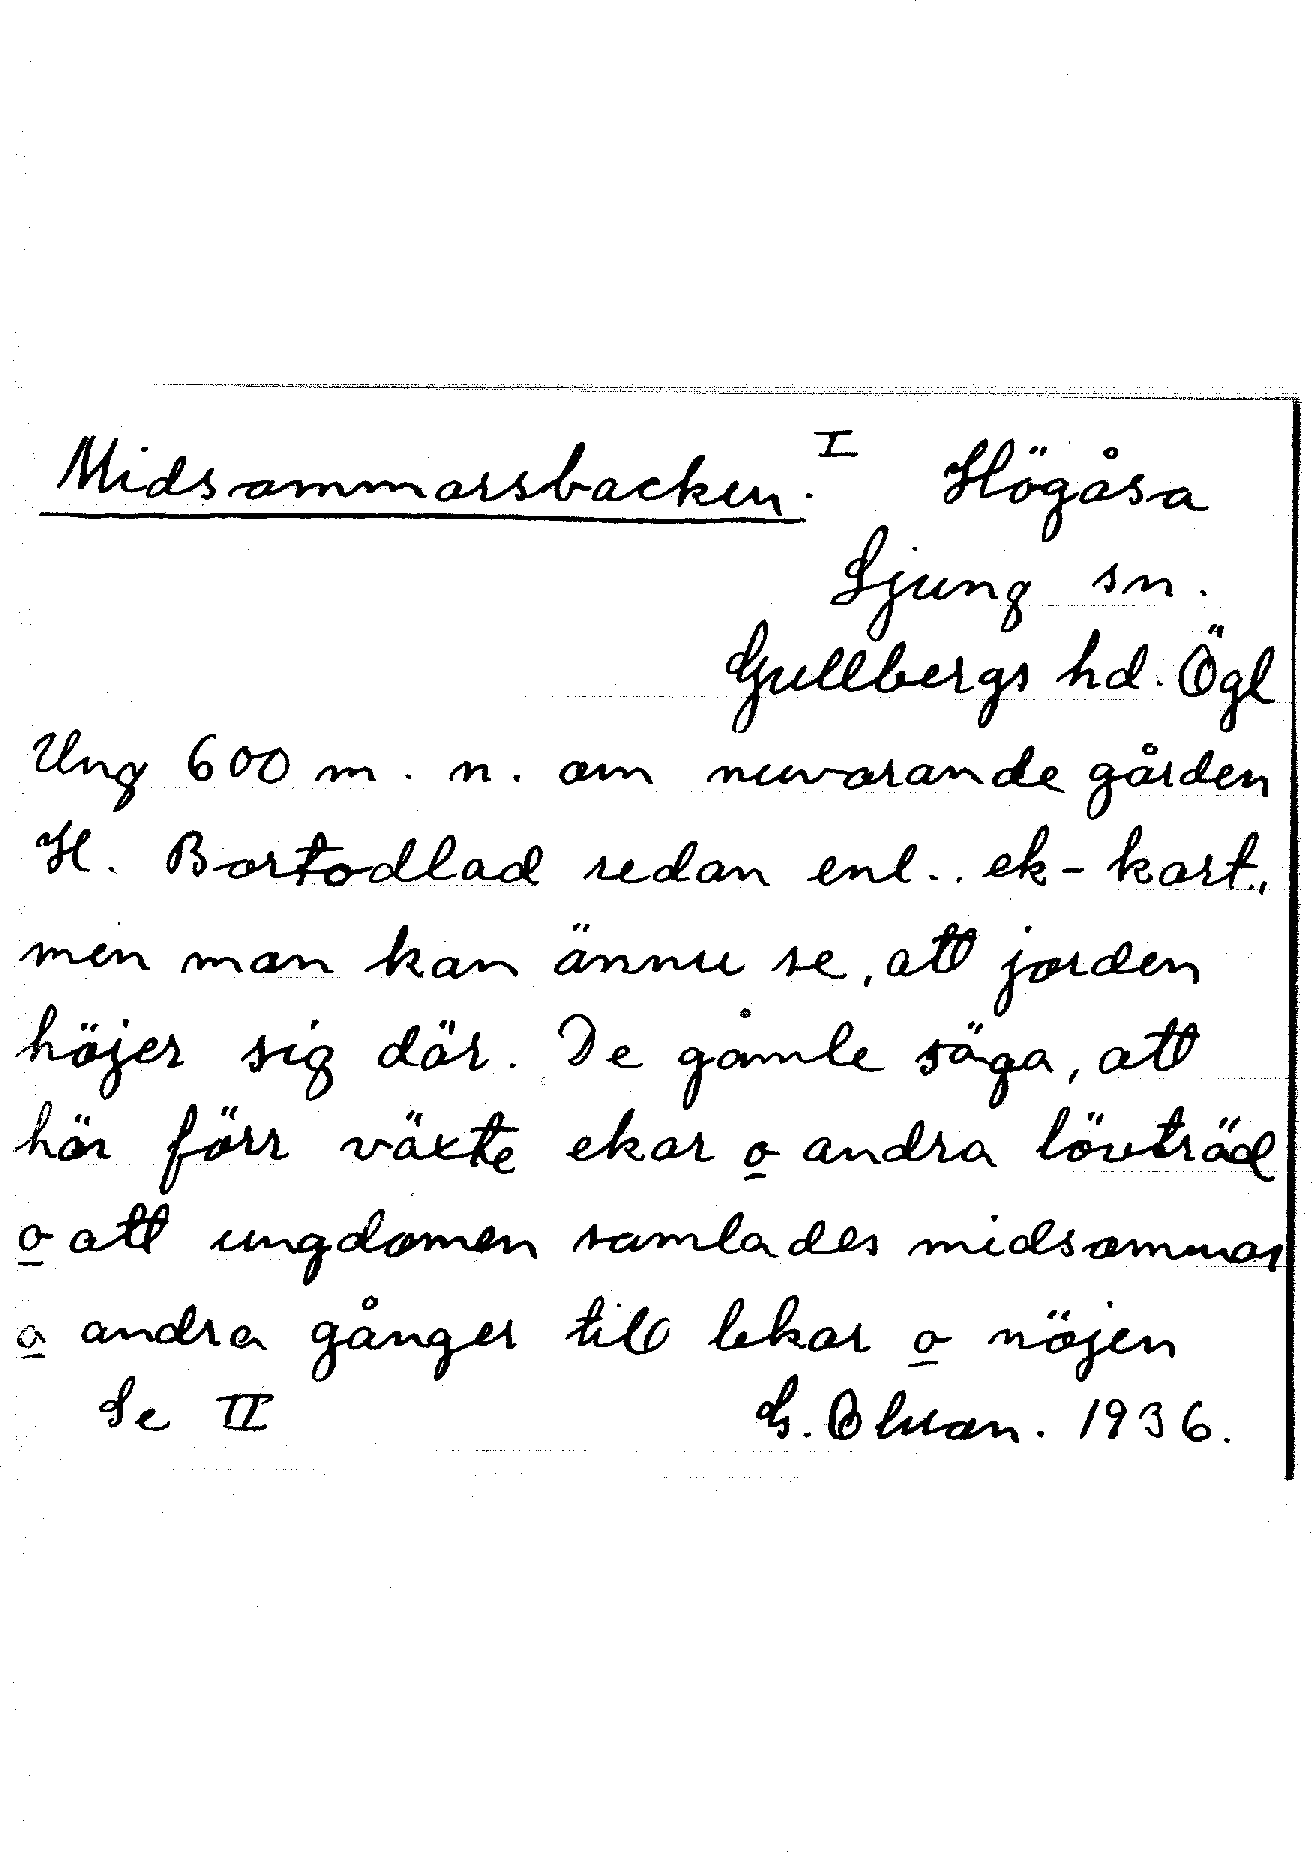 Midsommarsbacken. I Högåsa
Ljung sn.
Gullbergs hd. Ögl
Ung 600 m. n. om nuvarande gården
H. Bortodlad redan enl.. ek-kart.,
men man kan ännu se, att jorden
höjer sig där. De gamle säga, att
här förr växte ekar o andra lövträd
o att ungdomen samlades midsommar
o andra gånger till lekar o nöjen
Se II G. 1936.